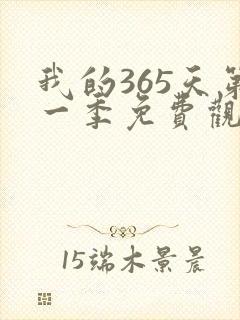 我的365天第
一季免費觀
15端木景晨